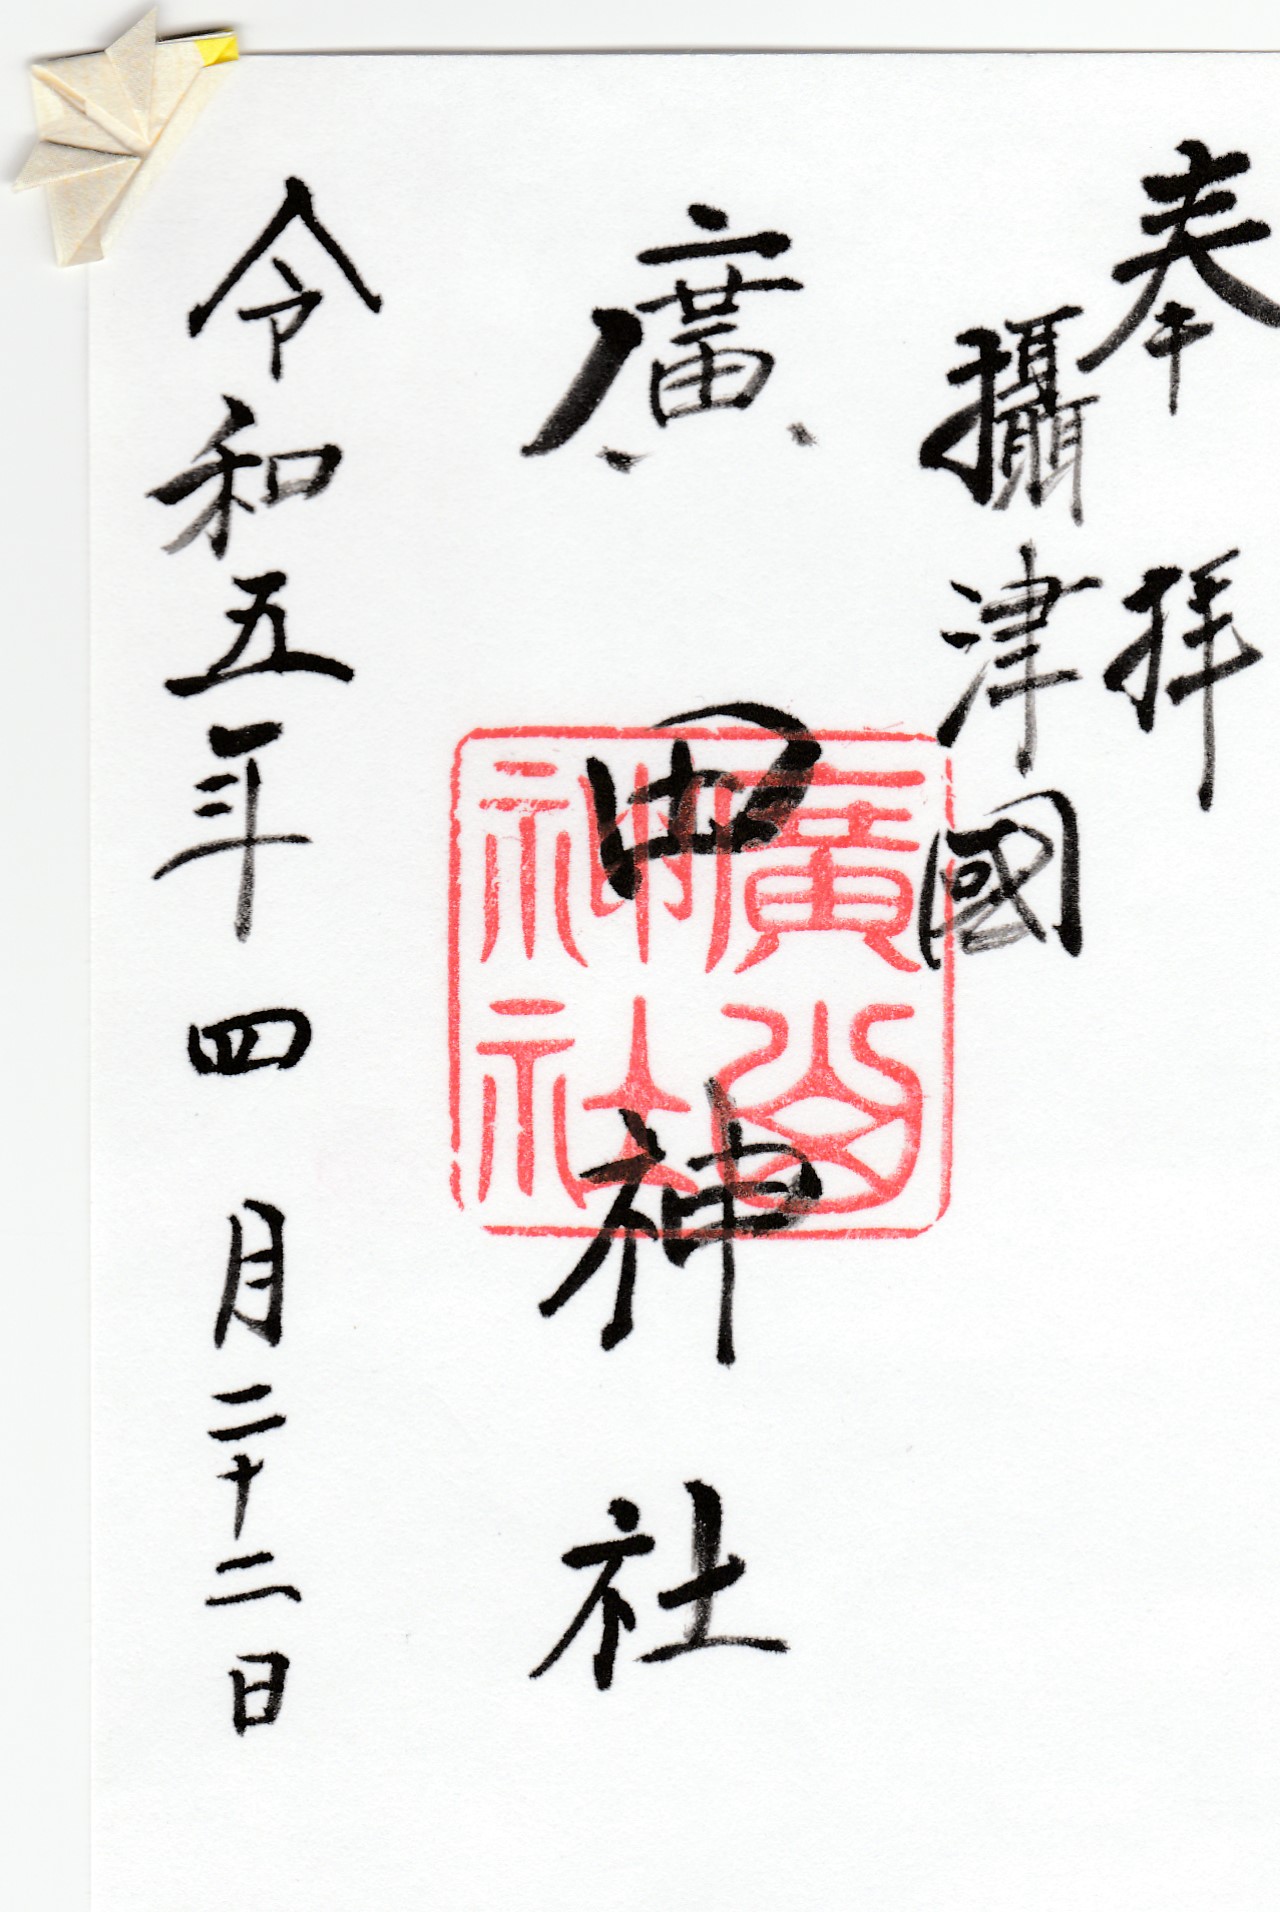 奉拝
攝津國
廣田神社
廣
神社
令和五年四月二十二日